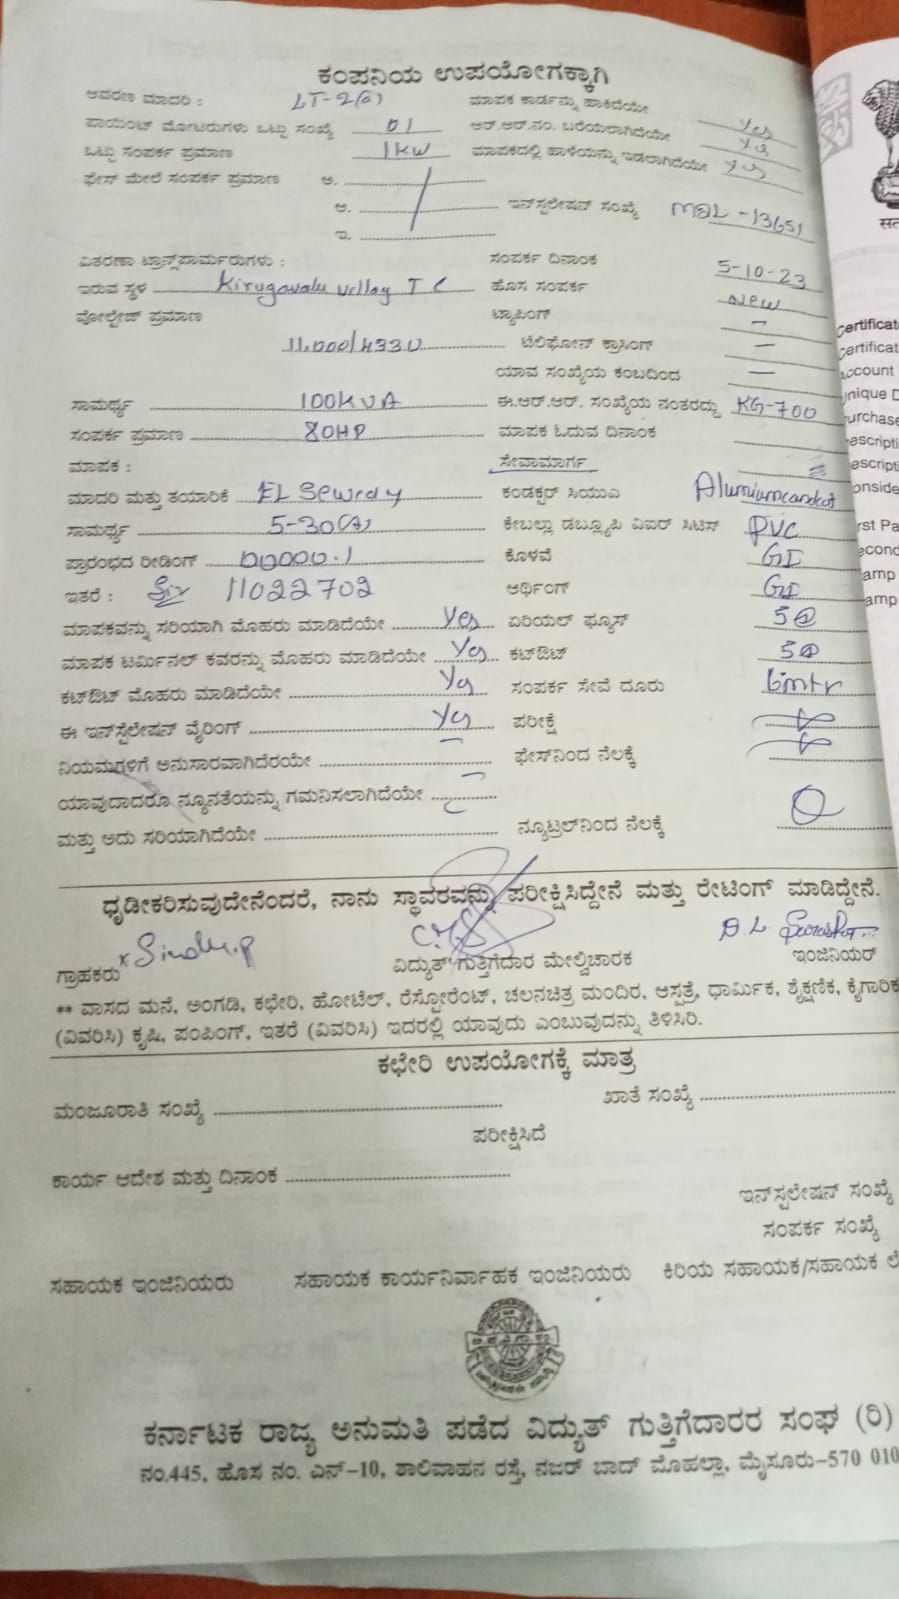 ಕಂಪನಿಯ ಉಪಯೋಗಕ್ಕಾಗಿ
ಆವರಣ ಮಾದರಿ : LT-2(a) ಮಾಪಕ ಕಾರ್ಡನ್ನು ಹಾಕಿದೆಯೇ Yes
ಪಾಯಿಂಟ್ ಮೋಟರುಗಳು ಒಟ್ಟು ಸಂಖ್ಯೆ 01 ಆರ್.ಆರ್.ನಂ. ಬರೆಯಲಾಗಿದೆಯೇ Yes
ಒಟ್ಟು ಸಂಪರ್ಕ ಪ್ರಮಾಣ 1KW ಮಾಪಕದಲ್ಲಿ ಹಾಳೆಯನ್ನು ಇಡಲಾಗಿದೆಯೇ Yes
ಫೇಸ್ ಮೇಲೆ ಸಂಪರ್ಕ ಪ್ರಮಾಣ ಅ.
ಆ. ಇನ್‌ಸ್ಟಲೇಷನ್ ಸಂಖ್ಯೆ MBL-13651
ಇ.
ವಿತರಣಾ ಟ್ರಾನ್ಸ್‌ಫಾರ್ಮರುಗಳು : ಸಂಪರ್ಕ ದಿನಾಂಕ 5-10-23
ಇರುವ ಸ್ಥಳ Kirugavalu T C ಹೊಸ ಸಂಪರ್ಕ New
ವೋಲ್ಟೇಜ್ ಪ್ರಮಾಣ ಟ್ಯಾಪಿಂಗ್ –
11,000/433V ಟೆಲಿಫೋನ್ ಕ್ರಾಸಿಂಗ್ –
ಯಾವ ಸಂಖ್ಯೆಯ ಕಂಬದಿಂದ –
ಸಾಮರ್ಥ್ಯ 100KVA ಈ.ಆರ್.ಆರ್. ಸಂಖ್ಯೆಯ ನಂತರದ್ದು KG-700
ಸಂಪರ್ಕ ಪ್ರಮಾಣ 80HP ಮಾಪಕ ಓದುವ ದಿನಾಂಕ
ಮಾಪಕ : ಸೇವಾಮಾರ್ಗ
ಮಾದರಿ ಮತ್ತು ತಯಾರಿಕೆ EL Sewedy ಕಂಡಕ್ಟರ್ ಸಿಯುಎ
ಸಾಮರ್ಥ್ಯ 5-30(A) ಕೇಬಲ್ಲು ಡಬ್ಲ್ಯೂಪಿ ವಿಐಆರ್ ಸಿಟಿಸ್ PVC
ಪ್ರಾರಂಭದ ರೀಡಿಂಗ್ 00000.1 ಕೊಳವೆ GI
ಇತರೆ : 11022702 ಆರ್ಥಿಂಗ್ GI
ಮಾಪಕವನ್ನು ಸರಿಯಾಗಿ ಮೊಹರು ಮಾಡಿದೆಯೇ Yes ಏರಿಯಲ್ ಫ್ಯೂಸ್ 5A
ಮಾಪಕ ಟರ್ಮಿನಲ್ ಕವರನ್ನು ಮೊಹರು ಮಾಡಿದೆಯೇ Yes ಕಟ್‌ಔಟ್ 5A
ಕಟ್‌ಔಟ್ ಮೊಹರು ಮಾಡಿದೆಯೇ Yes ಸಂಪರ್ಕ ಸೇವೆ ದೂರು 6mtr
ಈ ಇನ್‌ಸ್ಟಲೇಷನ್ ವೈರಿಂಗ್ Yes ಪರೀಕ್ಷೆ
ನಿಯಮಗಳಿಗೆ ಅನುಸಾರವಾಗಿದೆರಯೇ – ಫೇಸ್‌ನಿಂದ ನೆಲಕ್ಕೆ
ಯಾವುದಾದರೂ ನ್ಯೂನತೆಯನ್ನು ಗಮನಿಸಲಾಗಿದೆಯೇ
ಮತ್ತು ಅದು ಸರಿಯಾಗಿದೆಯೇ ನ್ಯೂಟ್ರಲ್‌ನಿಂದ ನೆಲಕ್ಕೆ
ಧೃಡೀಕರಿಸುವುದೇನೆಂದರೆ, ನಾನು ಸ್ಥಾವರವನ್ನು ಪರೀಕ್ಷಿಸಿದ್ದೇನೆ ಮತ್ತು ರೇಟಿಂಗ್ ಮಾಡಿದ್ದೇನೆ.
ಗ್ರಾಹಕರು ವಿದ್ಯುತ್ ಗುತ್ತಿಗೆದಾರ ಮೇಲ್ವಿಚಾರಕ ಇಂಜಿನಿಯರ್
** ವಾಸದ ಮನೆ, ಅಂಗಡಿ, ಕಛೇರಿ, ಹೋಟೆಲ್, ರೆಸ್ಟೋರೆಂಟ್, ಚಲನಚಿತ್ರ ಮಂದಿರ, ಆಸ್ಪತ್ರೆ, ಧಾರ್ಮಿಕ, ಶೈಕ್ಷಣಿಕ, ಕೈಗಾರಿಕ
(ವಿವರಿಸಿ) ಕೃಷಿ, ಪಂಪಿಂಗ್, ಇತರೆ (ವಿವರಿಸಿ) ಇದರಲ್ಲಿ ಯಾವುದು ಎಂಬುವುದನ್ನು ತಿಳಿಸಿರಿ.
ಕಛೇರಿ ಉಪಯೋಗಕ್ಕೆ ಮಾತ್ರ
ಮಂಜೂರಾತಿ ಸಂಖ್ಯೆ ಖಾತೆ ಸಂಖ್ಯೆ
ಪರೀಕ್ಷಿಸಿದೆ
ಕಾರ್ಯ ಆದೇಶ ಮತ್ತು ದಿನಾಂಕ
ಇನ್‌ಸ್ಟಲೇಷನ್ ಸಂಖ್ಯೆ
ಸಂಪರ್ಕ ಸಂಖ್ಯೆ
ಸಹಾಯಕ ಇಂಜಿನಿಯರು ಸಹಾಯಕ ಕಾರ್ಯನಿರ್ವಾಹಕ ಇಂಜಿನಿಯರು ಕಿರಿಯ ಸಹಾಯಕ/ಸಹಾಯಕ
ಕರ್ನಾಟಕ ರಾಜ್ಯ ಅನುಮತಿ ಪಡೆದ ವಿದ್ಯುತ್ ಗುತ್ತಿಗೆದಾರರ ಸಂಘ (ರಿ)
ನಂ.445, ಹೊಸ ನಂ. ಎನ್-10, ಶಾಲಿವಾಹನ ರಸ್ತೆ, ನಜರ್ ಬಾದ್ ಮೊಹಲ್ಲಾ, ಮೈಸೂರು-570 010